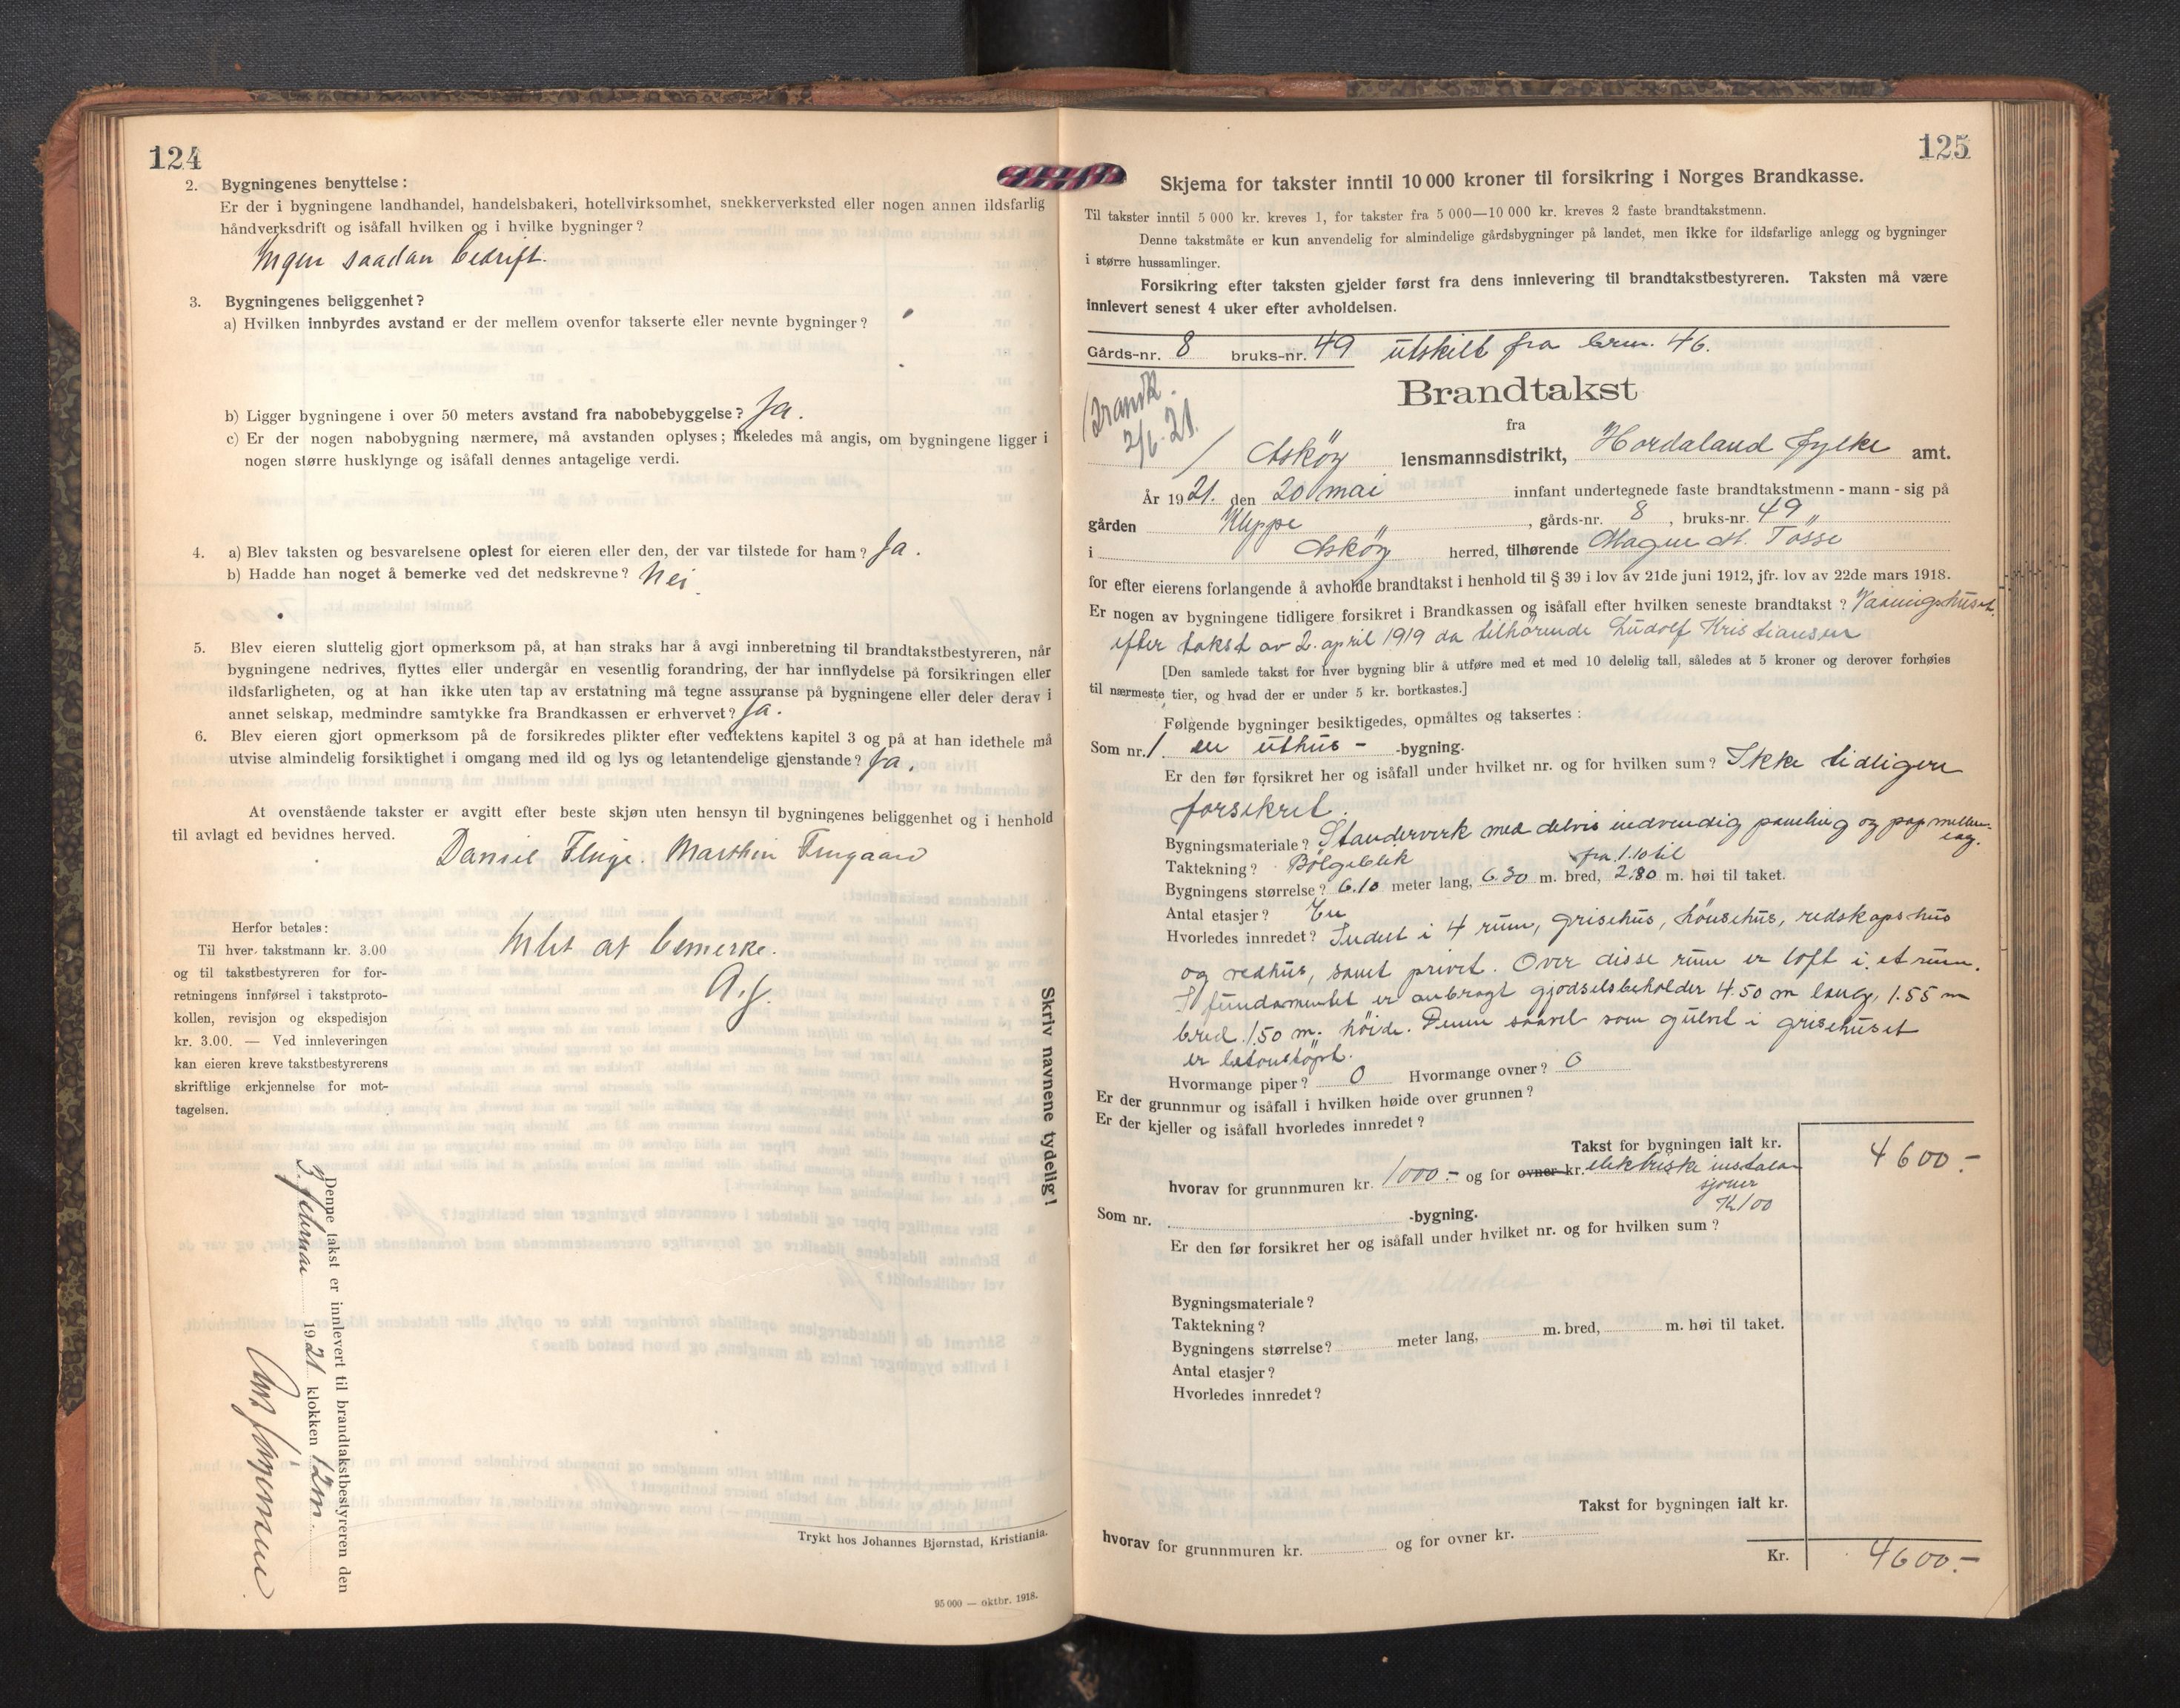 124
2. Bygningenes benyttelse:
Er der i bygningene landhandel, handelsbakeri, hotellvirksomhet, snekkerverksted eller nogen annen ildsfarlig
håndverksdrift og isåfall hvilken og i hvilke bygninger?
Ingen saadan bedrift.
3. Bygningenes beliggenhet?
a) Hvilken innbyrdes avstand er der mellem ovenfor takserte eller nevnte bygninger?
b) Ligger bygningene i over 50 meters avstand fra nabobebyggelse? Ja.
c) Er der nogen nabobygning nærmere, må avstanden oplyses; likeledes må angis, om bygningene ligger i
nogen større husklynge og isåfall dennes antagelige verdi.
4. a) Blev taksten og besvarelsene oplest for eieren eller den, der var tilstede for ham? Ja.
b) Hadde han noget å bemerke ved det nedskrevne? Nei.
5. Blev eieren sluttelig gjort opmerksom på, at han straks har å avgi innberetning til brandtakstbestyreren, når
bygningene nedrives, flyttes eller undergår en vesentlig forandring, der har innflydelse på forsikringen eller
ildsfarligheten, og at han ikke uten tap av erstatning må tegne assuranse på bygningene eller deler derav i
annet selskap, medmindre samtykke fra Brandkassen er erhvervet? Ja.
6. Blev eieren gjort opmerksom på de forsikredes plikter efter vedtektens kapitel 3 og på at han idethele må
utvise almindelig forsiktighet i omgang med ild og lys og letantendelige gjenstande? Ja.
At ovenstående takster er avgitt efter beste skjøn uten hensyn til bygningenes beliggenhet og i henhold
til avlagt ed bevidnes herved.
Daniel Fluge. Marthin
Herfor betales:
Til hver takstmann kr. 3.00
og til takstbestyreren for for-
retningens innførsel i takstproto-
kollen, revisjon og ekspedisjon
kr. 3.00. — Ved innleveringen
kan eieren kreve takstbestyrerens
skriftlige erkjennelse for mot-
tagelsen.
Intet at bemerke.
A.J.
Skriv navnene tydelig!
Denne takst er innlevert til brandtakstbestyreren den
3. februar 1921 klokken 12 m.
Trykt hos Johannes Bjørnstad, Kristiania.
95 000 — oktbr. 1918.
125
Skjema for takster inntil 10 000 kroner til forsikring i Norges Brandkasse.
Til takster inntil 5 000 kr. kreves 1, for takster fra 5 000—10 000 kr. kreves 2 faste brandtakstmenn.
Denne takstmåte er kun anvendelig for almindelige gårdsbygninger på landet, men ikke for ildsfarlige anlegg og bygninger
i større hussamlinger.
Forsikring efter taksten gjelder først fra dens innlevering til brandtakstbestyreren. Taksten må være
innlevert senest 4 uker efter avholdelsen.
Gårds-nr. 8 bruks-nr. 49 utskilt fra brn. 46.
Brandtakst
fra
2/6 21.
Askøy lensmannsdistrikt, Hordaland fylke amt.
År 1921. den 20 mai innfant undertegnede faste brandtakstmenn - mann - sig på
gården Kleppe, gårds-nr. 8, bruks-nr. 49
i Askøy herred, tilhørende Magne M. Tösse
for efter eierens forlangende å avholde brandtakst i henhold til § 39 i lov av 21de juni 1912, jfr. lov av 22de mars 1918.
Er nogen av bygningene tidligere forsikret i Brandkassen og isåfall efter hvilken seneste brandtakst? Vaaningshuset
efter takst av 2. april 1919 da tilhørende Ludolf Kristiansen
[Den samlede takst for hver bygning blir å utføre med et med 10 delelig tall, således at 5 kroner og derover forhøies
til nærmeste tier, og hvad der er under 5 kr. bortkastes.]
Følgende bygninger besiktigedes, opmåltes og taksertes:
Som nr. 1 en uthus- -bygning.
Er den før forsikret her og isåfall under hvilket nr. og for hvilken sum? Ikke tidligere
forsikret.
Bygningsmateriale? Standerverk med delvis indvendig paneling og pap mellem-
lag.
Taktekning? Bölgeblik
fra 1.10 til
Bygningens størrelse? 6.10 meter lang, 6.30 m. bred, 2.80 m. høi til taket.
Antal etasjer? En
Hvorledes innredet? Indelt i 4 rum, grisehus, hönsehus, redskapshus
og vedhus, samt privet. Over disse rum er loft i et rum.
I fundamentet er anbragt gjödselsbeholder 4.50 m lang, 1.55 m
bred 1.50 m. höide. Denne saavel som gulvet i grisehuset
er betonstöpt.
Hvormange piper? 0 Hvormange ovner? 0
Er der grunnmur og isåfall i hvilken høide over grunnen?
Er der kjeller og isåfall hvorledes innredet?
Takst for bygningen ialt kr. 4600.-
hvorav for grunnmuren kr. 1000.- og for ovner kr. elektriske instala-
sjoner
K 100
Som nr. -bygning.
Er den før forsikret her og isåfall under hvilket nr. og for hvilken sum?
Bygningsmateriale?
Taktekning?
Bygningens størrelse? meter lang, m. bred, m. høi til taket.
Antal etasjer?
Hvorledes innredet?
Takst for bygningen ialt kr.
hvorav for grunnmuren kr. og for ovner kr.
Kr. 4600.-